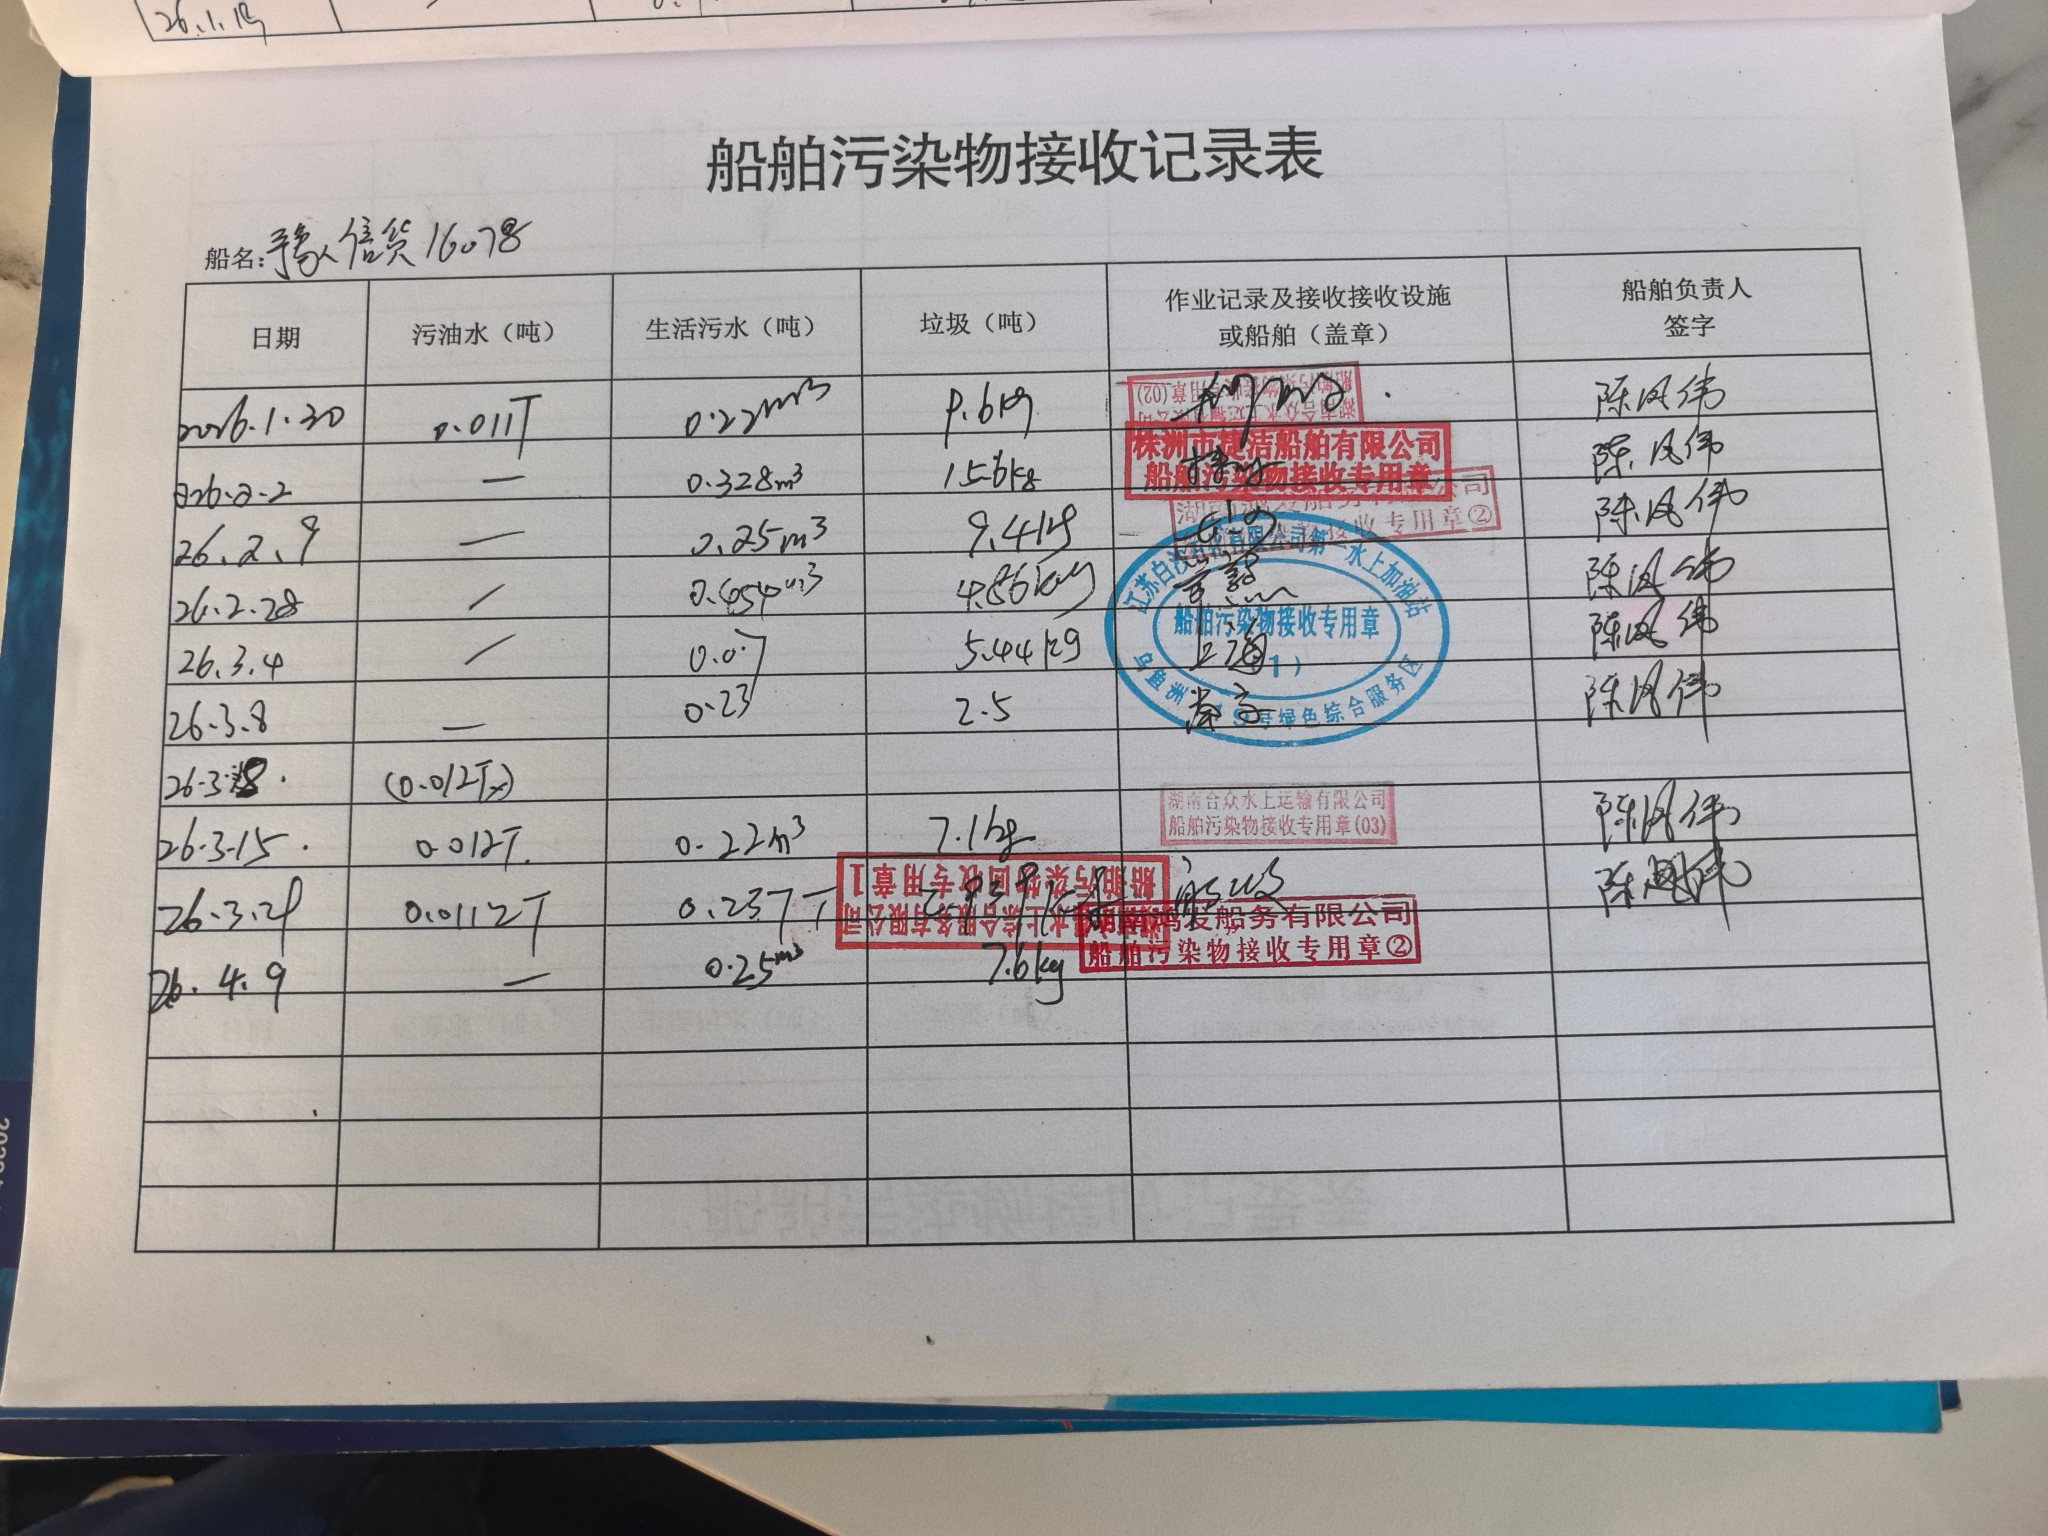 26.1.19
船舶污染物接收记录表
船名:豫信货16078
日期 污油水（吨） 生活污水（吨） 垃圾（吨） 作业记录及接收接收设施或船舶（盖章） 船舶负责人签字
2026.1.30 0.011T 0.22m³ 9.6kg 陈凤伟
湖南合众水上运输有限公司
船舶污染物接收专用章(02)
株洲市捷洁船舶有限公司
船舶污染物接收专用章
026.2.2 — 0.328m³ 15.6kg 陈凤伟
船舶污染物接收专用章②
26.2.9 — 0.25m³ 9.4kg 陈凤伟
26.2.28 / 0.454m³ 4.86kg 常熟 陈凤伟
江苏白沙 有限公司第一水上加油站
船舶污染物接收专用章
(1)
乌鱼洲 号绿色综合服务区
26.3.4 / 0.07 5.44kg 上海 陈凤伟
26.3.8 — 0.23 2.5 陈凤伟
26.3.18. (0.012T)
26.3.15. 0.012T. 0.22m³ 7.1kg 陈凤伟
湖南合众水上运输有限公司
船舶污染物接收专用章(03)
26.3.29 0.0112T 0.237T 陈凤伟
水上综合服务有限公司
船舶污染物回收专用章1
鸿发船务有限公司
船舶污染物接收专用章②
26.4.9 — 0.25m³ 7.6kg